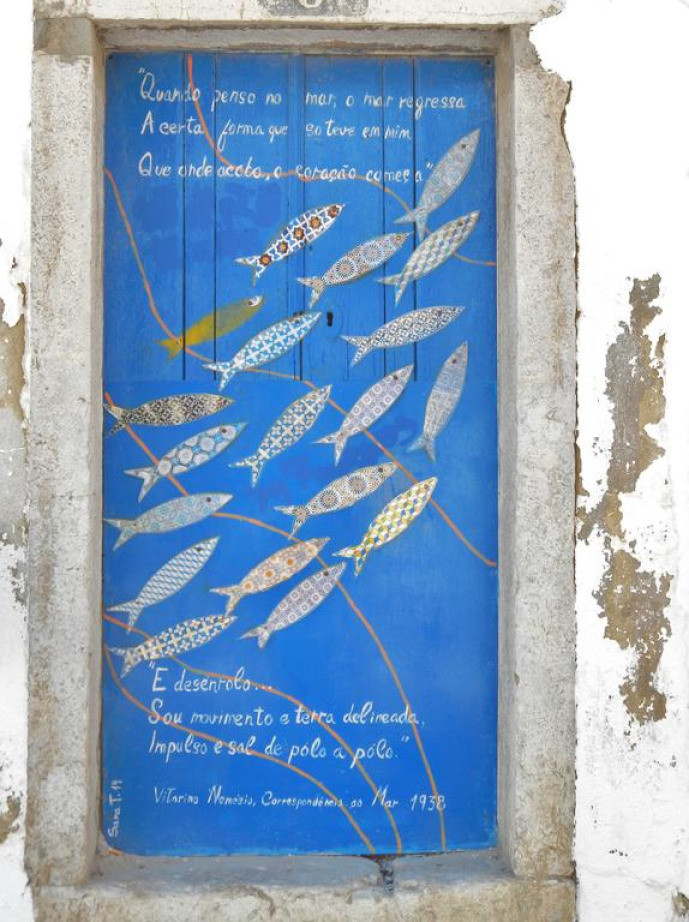 "Quando penso no mar, o mar regressa
A certa forma que só teve em mim
Que onde acabo, o coração começa"
"E desenrolo...
Sou movimento e terra delineada,
Impulso e sal de pólo a pólo."
Vitorino Nemésio, Correspondência ao Mar 1938
Sara T. 19